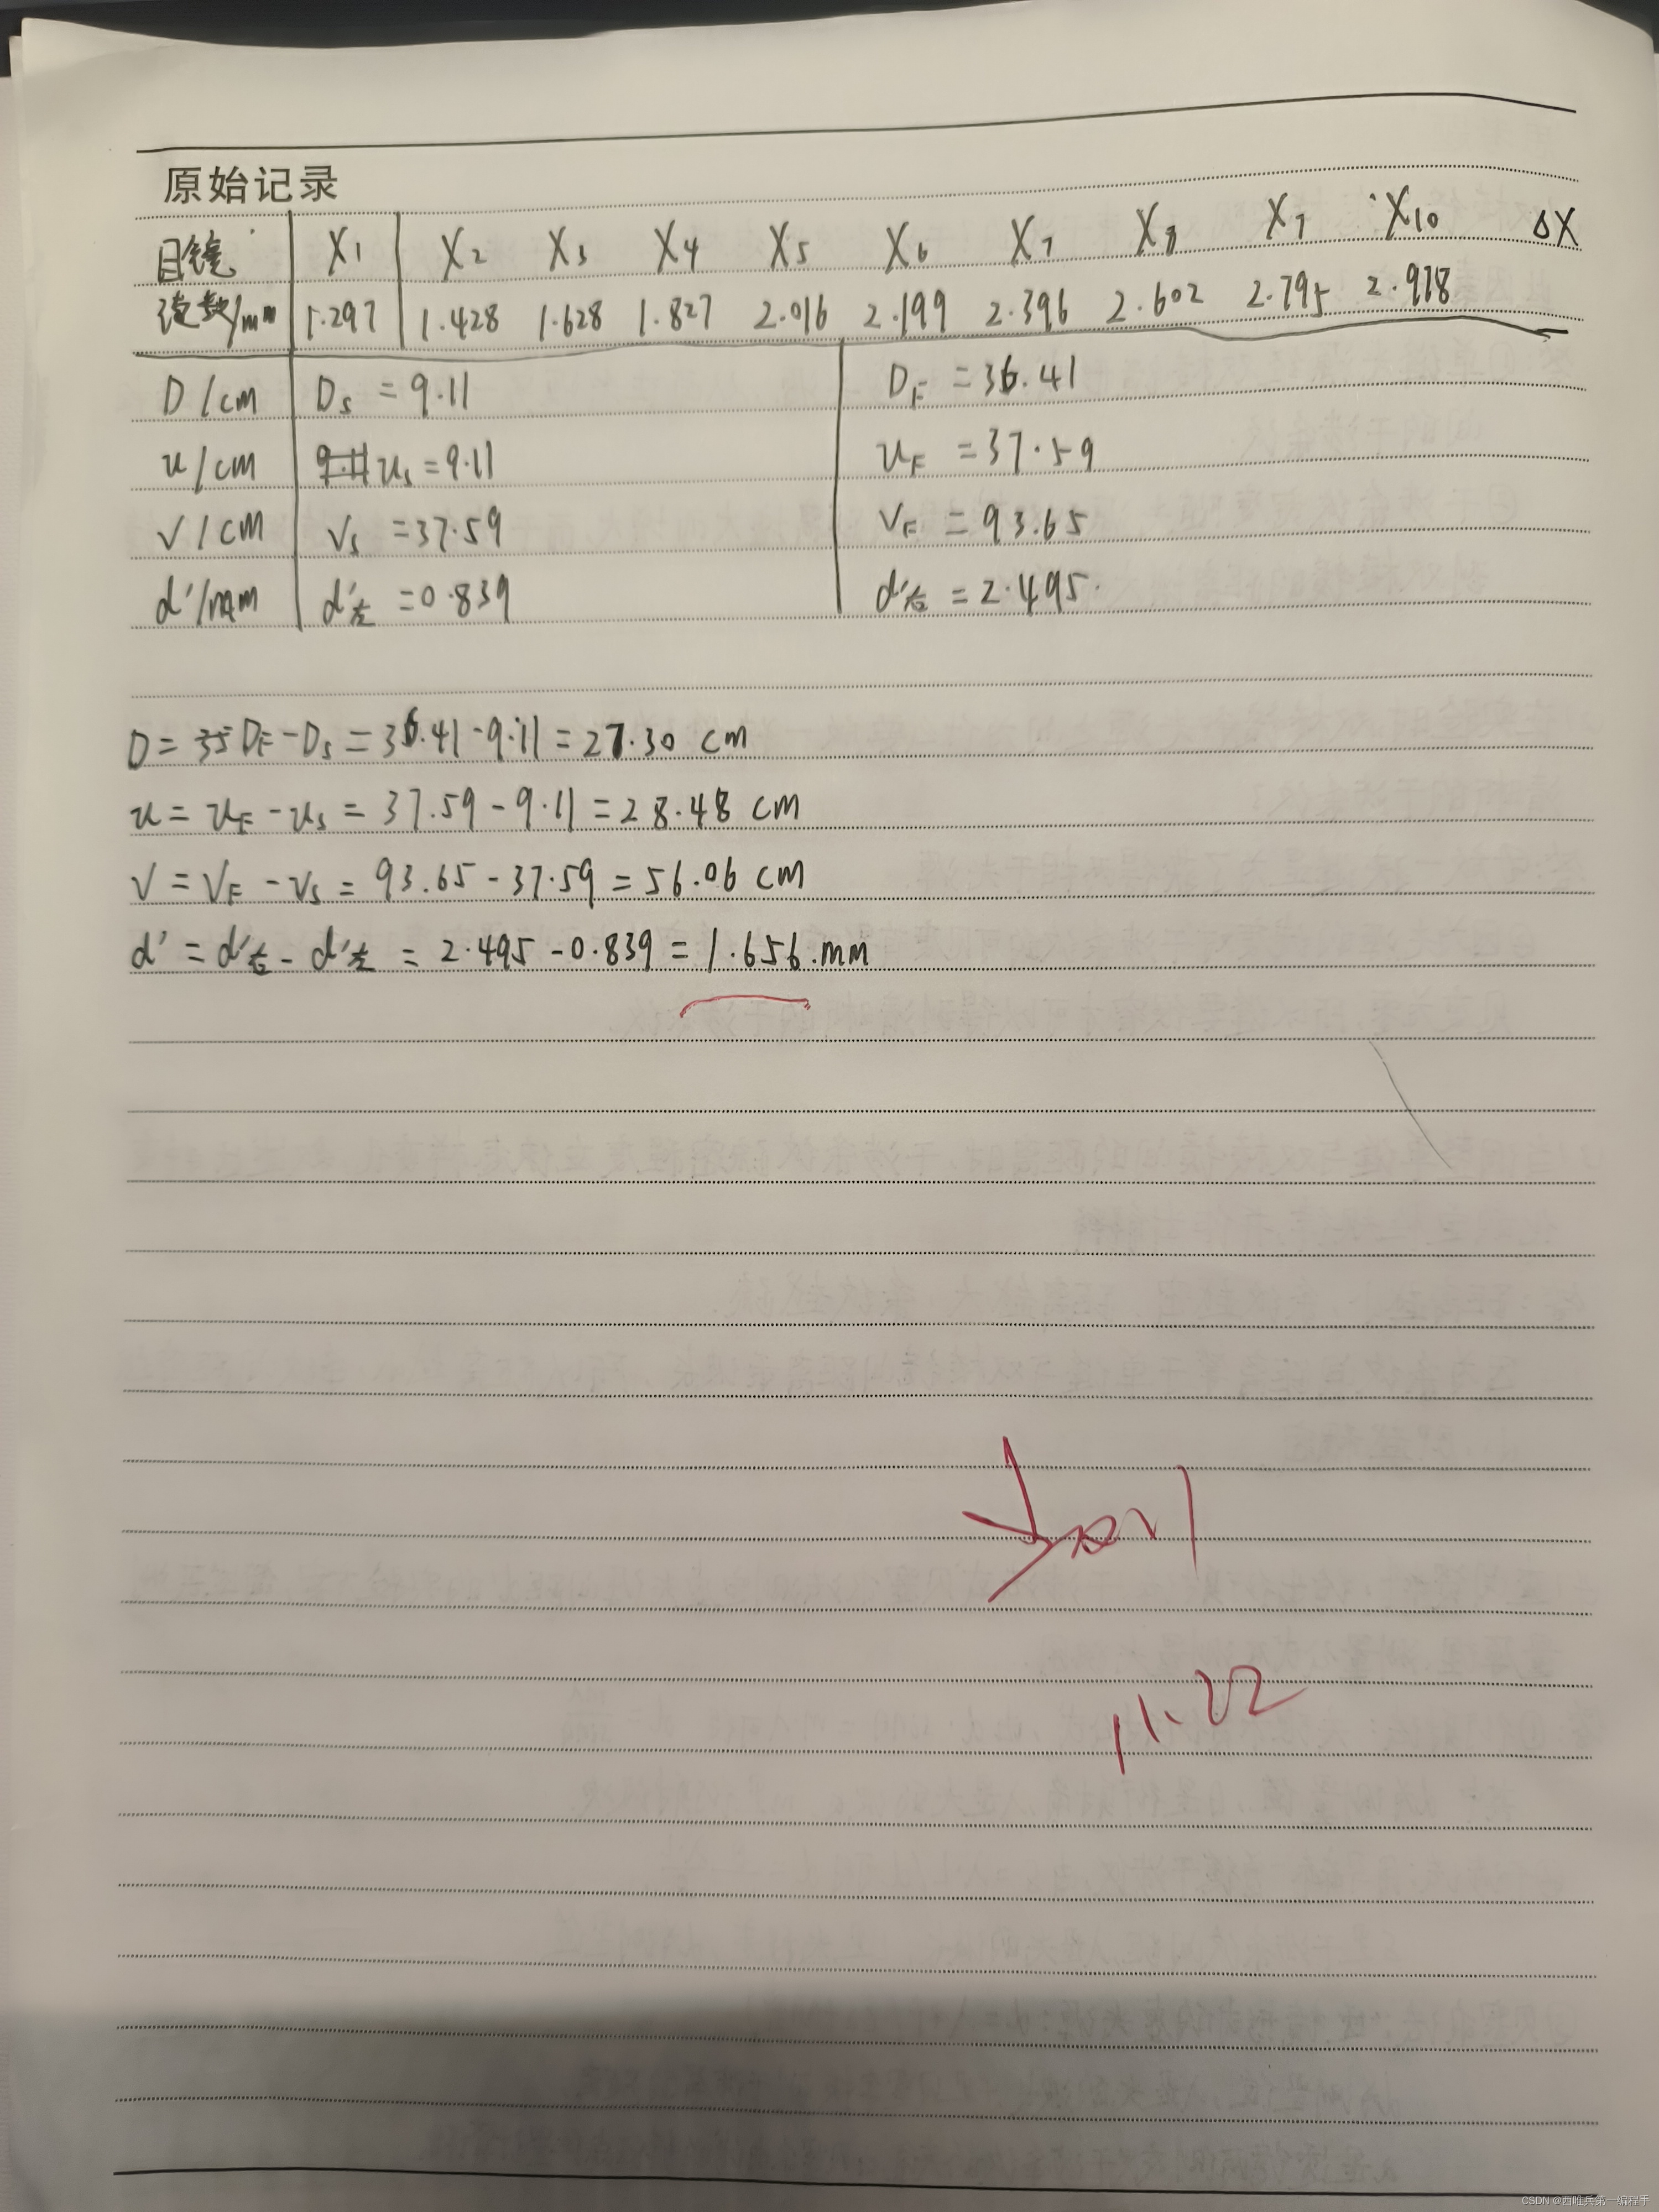 原始记录
目镜 X1 X2 X3 X4 X5 X6 X7 X8 X9 X10 ΔX
读数/mm 1.297 1.428 1.628 1.827 2.016 2.199 2.396 2.602 2.795 2.978
D/cm Ds = 9.11 DF = 36.41
u/cm us = 9.11 uF = 37.59
V/cm Vs = 37.59 VF = 93.65
d'/mm d'左 = 0.839 d'右 = 2.495
D = DF - Ds = 36.41 - 9.11 = 27.30 cm
u = uF - us = 37.59 - 9.11 = 28.48 cm
V = VF - Vs = 93.65 - 37.59 = 56.06 cm
d' = d'右 - d'左 = 2.495 - 0.839 = 1.656 mm
11.22
CSDN @西唯兵第一编程手